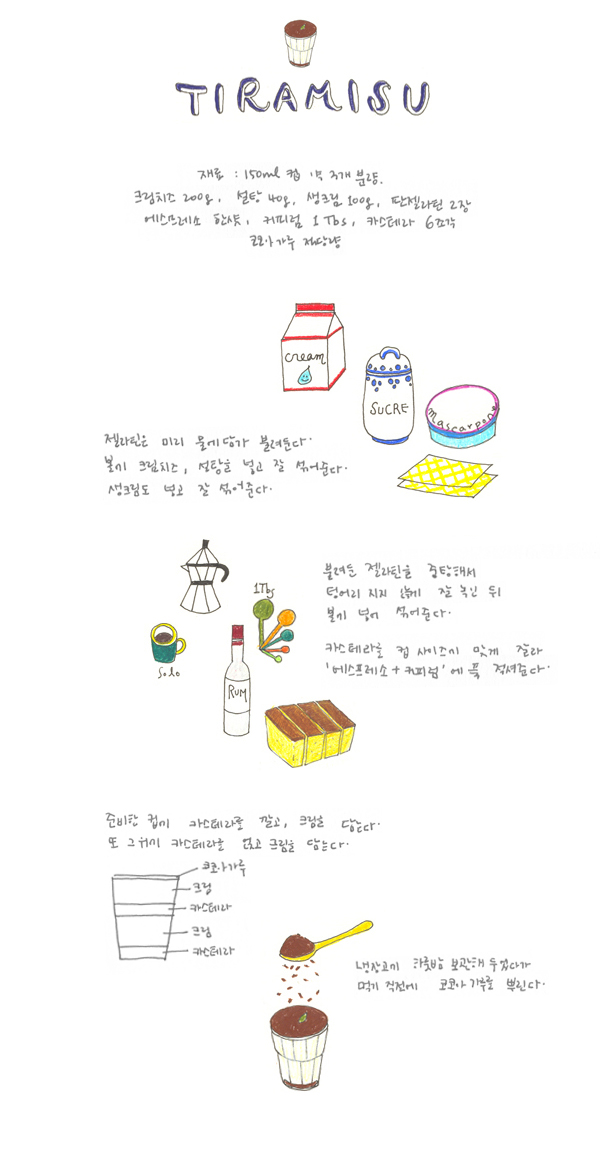 TIRAMISU
재료 : 150ml 컵 약 3개 분량.
크림치즈 200g, 설탕 40g, 생크림 100g, 판젤라틴 2장
에스프레소 한샷, 커피럼 1 Tbs, 카스테라 6조각
코코아가루 적당량
cream
SUCRE
mascarpone
젤라틴은 미리 물에 담가 불려둔다.
볼에 크림치즈, 설탕을 넣고 잘 섞어준다.
생크림도 넣고 잘 섞어준다.
불려둔 젤라틴을 중탕해서
덩어리 지지 않게 잘 녹인 뒤
볼에 넣어 섞어준다.
1Tbs
Solo
RUM
카스테라를 컵 사이즈에 맞게 잘라
'에스프레소 + 커피럼'에 푹 적셔준다.
준비한 컵에 카스테라를 깔고, 크림을 담는다.
또 그위에 카스테라를 얹고 크림을 담는다.
코코아가루
크림
카스테라
크림
카스테라
냉장고에 하룻밤 보관해 두었다가
먹기 직전에 코코아 가루를 뿌린다.